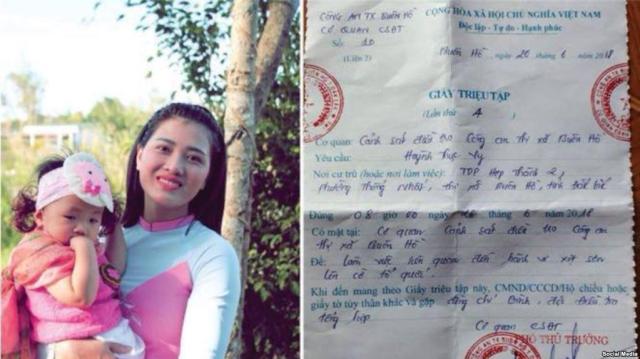 CÔNG AN TX BUÔN HỒ
CƠ QUAN CSĐT
Số: 10
(Liên 2)
CỘNG HÒA XÃ HỘI CHỦ NGHĨA VIỆT NAM
Độc lập - Tự do - Hạnh phúc
Buôn Hồ, ngày 20 tháng 6 năm 2018
GIẤY TRIỆU TẬP
(Lần thứ 1)
Cơ quan: Cảnh sát điều tra Công an thị xã Buôn Hồ
Yêu cầu: Huỳnh Thục Vy
Nơi cư trú (hoặc nơi làm việc): TDP Hợp Thành 2,
phường Thống Nhất, thị xã Buôn Hồ, tỉnh Đắk Lắk
Đúng 08 giờ 00 ngày 6 2018
Có mặt tại: Cơ quan Cảnh sát điều tra Công an
thị xã Buôn Hồ
Để: Làm việc liên quan đến hành vi xịt sơn
lên cờ tổ quốc
Khi đến mang theo Giấy triệu tập này, CMND/CCCD/Hộ chiếu hoặc
giấy tờ tùy thân khác và gặp đồng chí Bính, đội điều tra
tổng hợp
Cơ quan CSĐT
PHÓ THỦ TRƯỞNG
Social Media